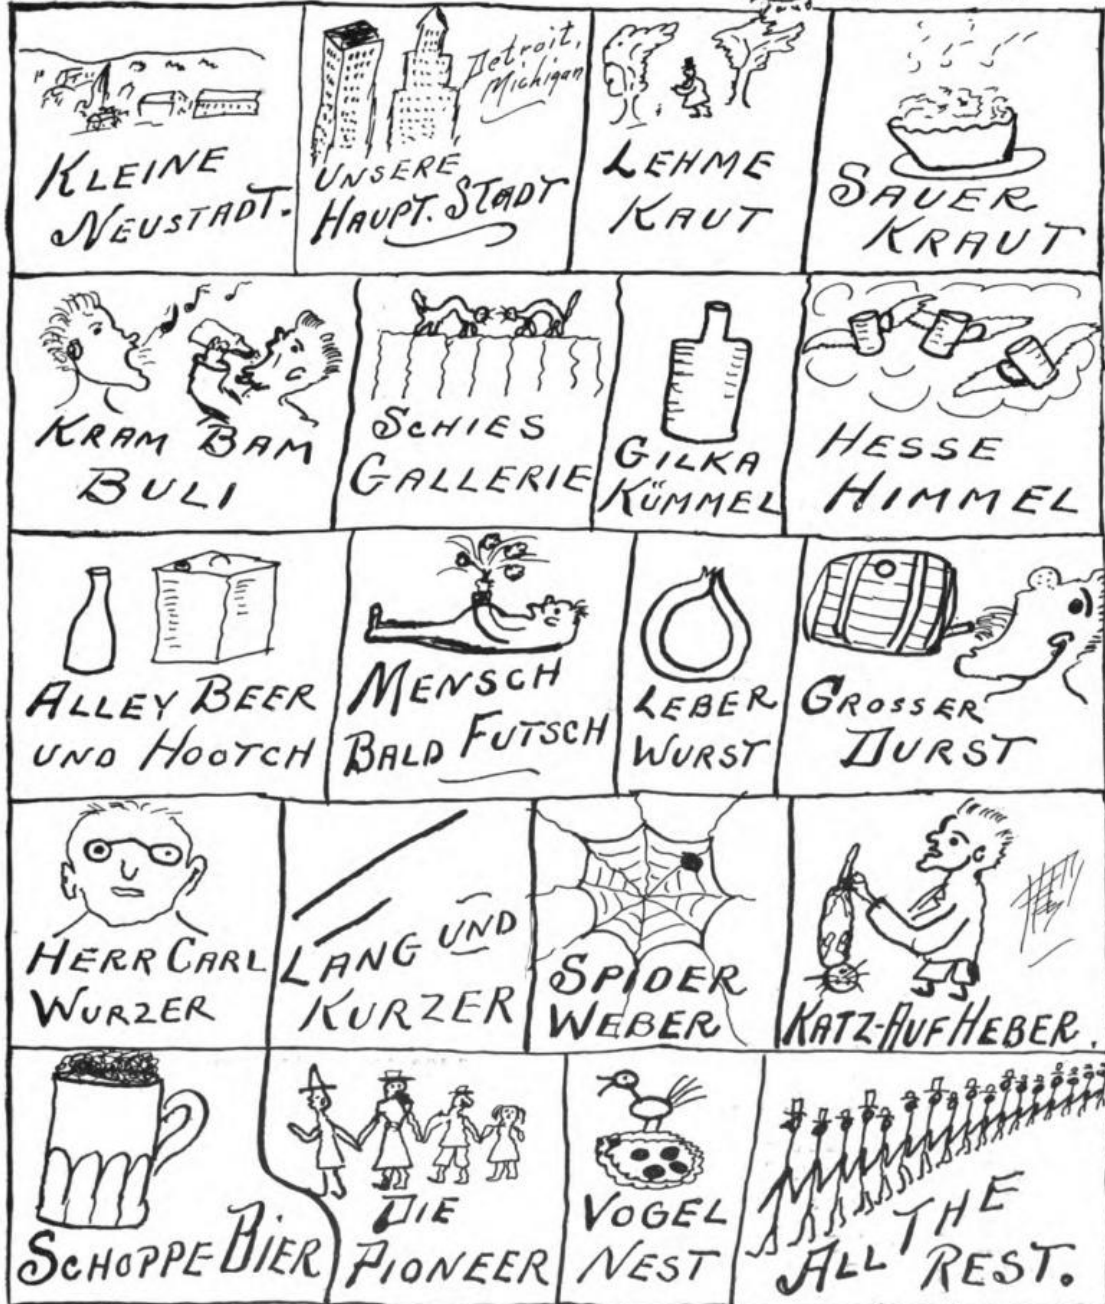 KLEINE
NEUSTADT.
Detroit,
Michigan
UNSERE
HAUPT. STADT
LEHME
KAUT
SAUER
KRAUT
KRAM BAM
BULI
SCHIES
GALLERIE
GILKA
KÜMMEL
HESSE
HIMMEL
ALLEY BEER
UND HOOTCH
MENSCH
BALD FUTSCH
LEBER
WURST
GROSSER
DURST
HERR CARL
WURZER
LANG UND
KURZER
SPIDER
WEBER
KATZ-AUFHEBER.
SCHOPPE BIER
DIE
PIONEER
VOGEL
NEST
ALL THE
REST.